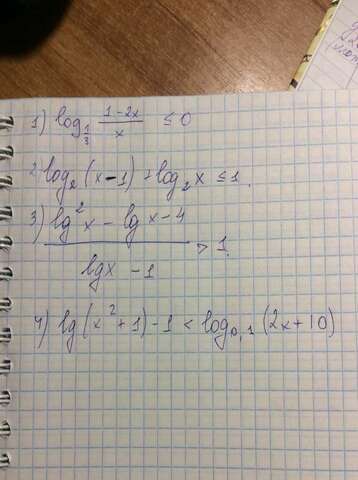 1) log_{1/3} (1-2x)/x ≤ 0
2. log₂(x-1) + log₂x ≤ 1.
3) (lg²x - lgx - 4)/(lgx - 1) > 1.
4) lg(x²+1) - 1 < log₀,₁(2x+10)